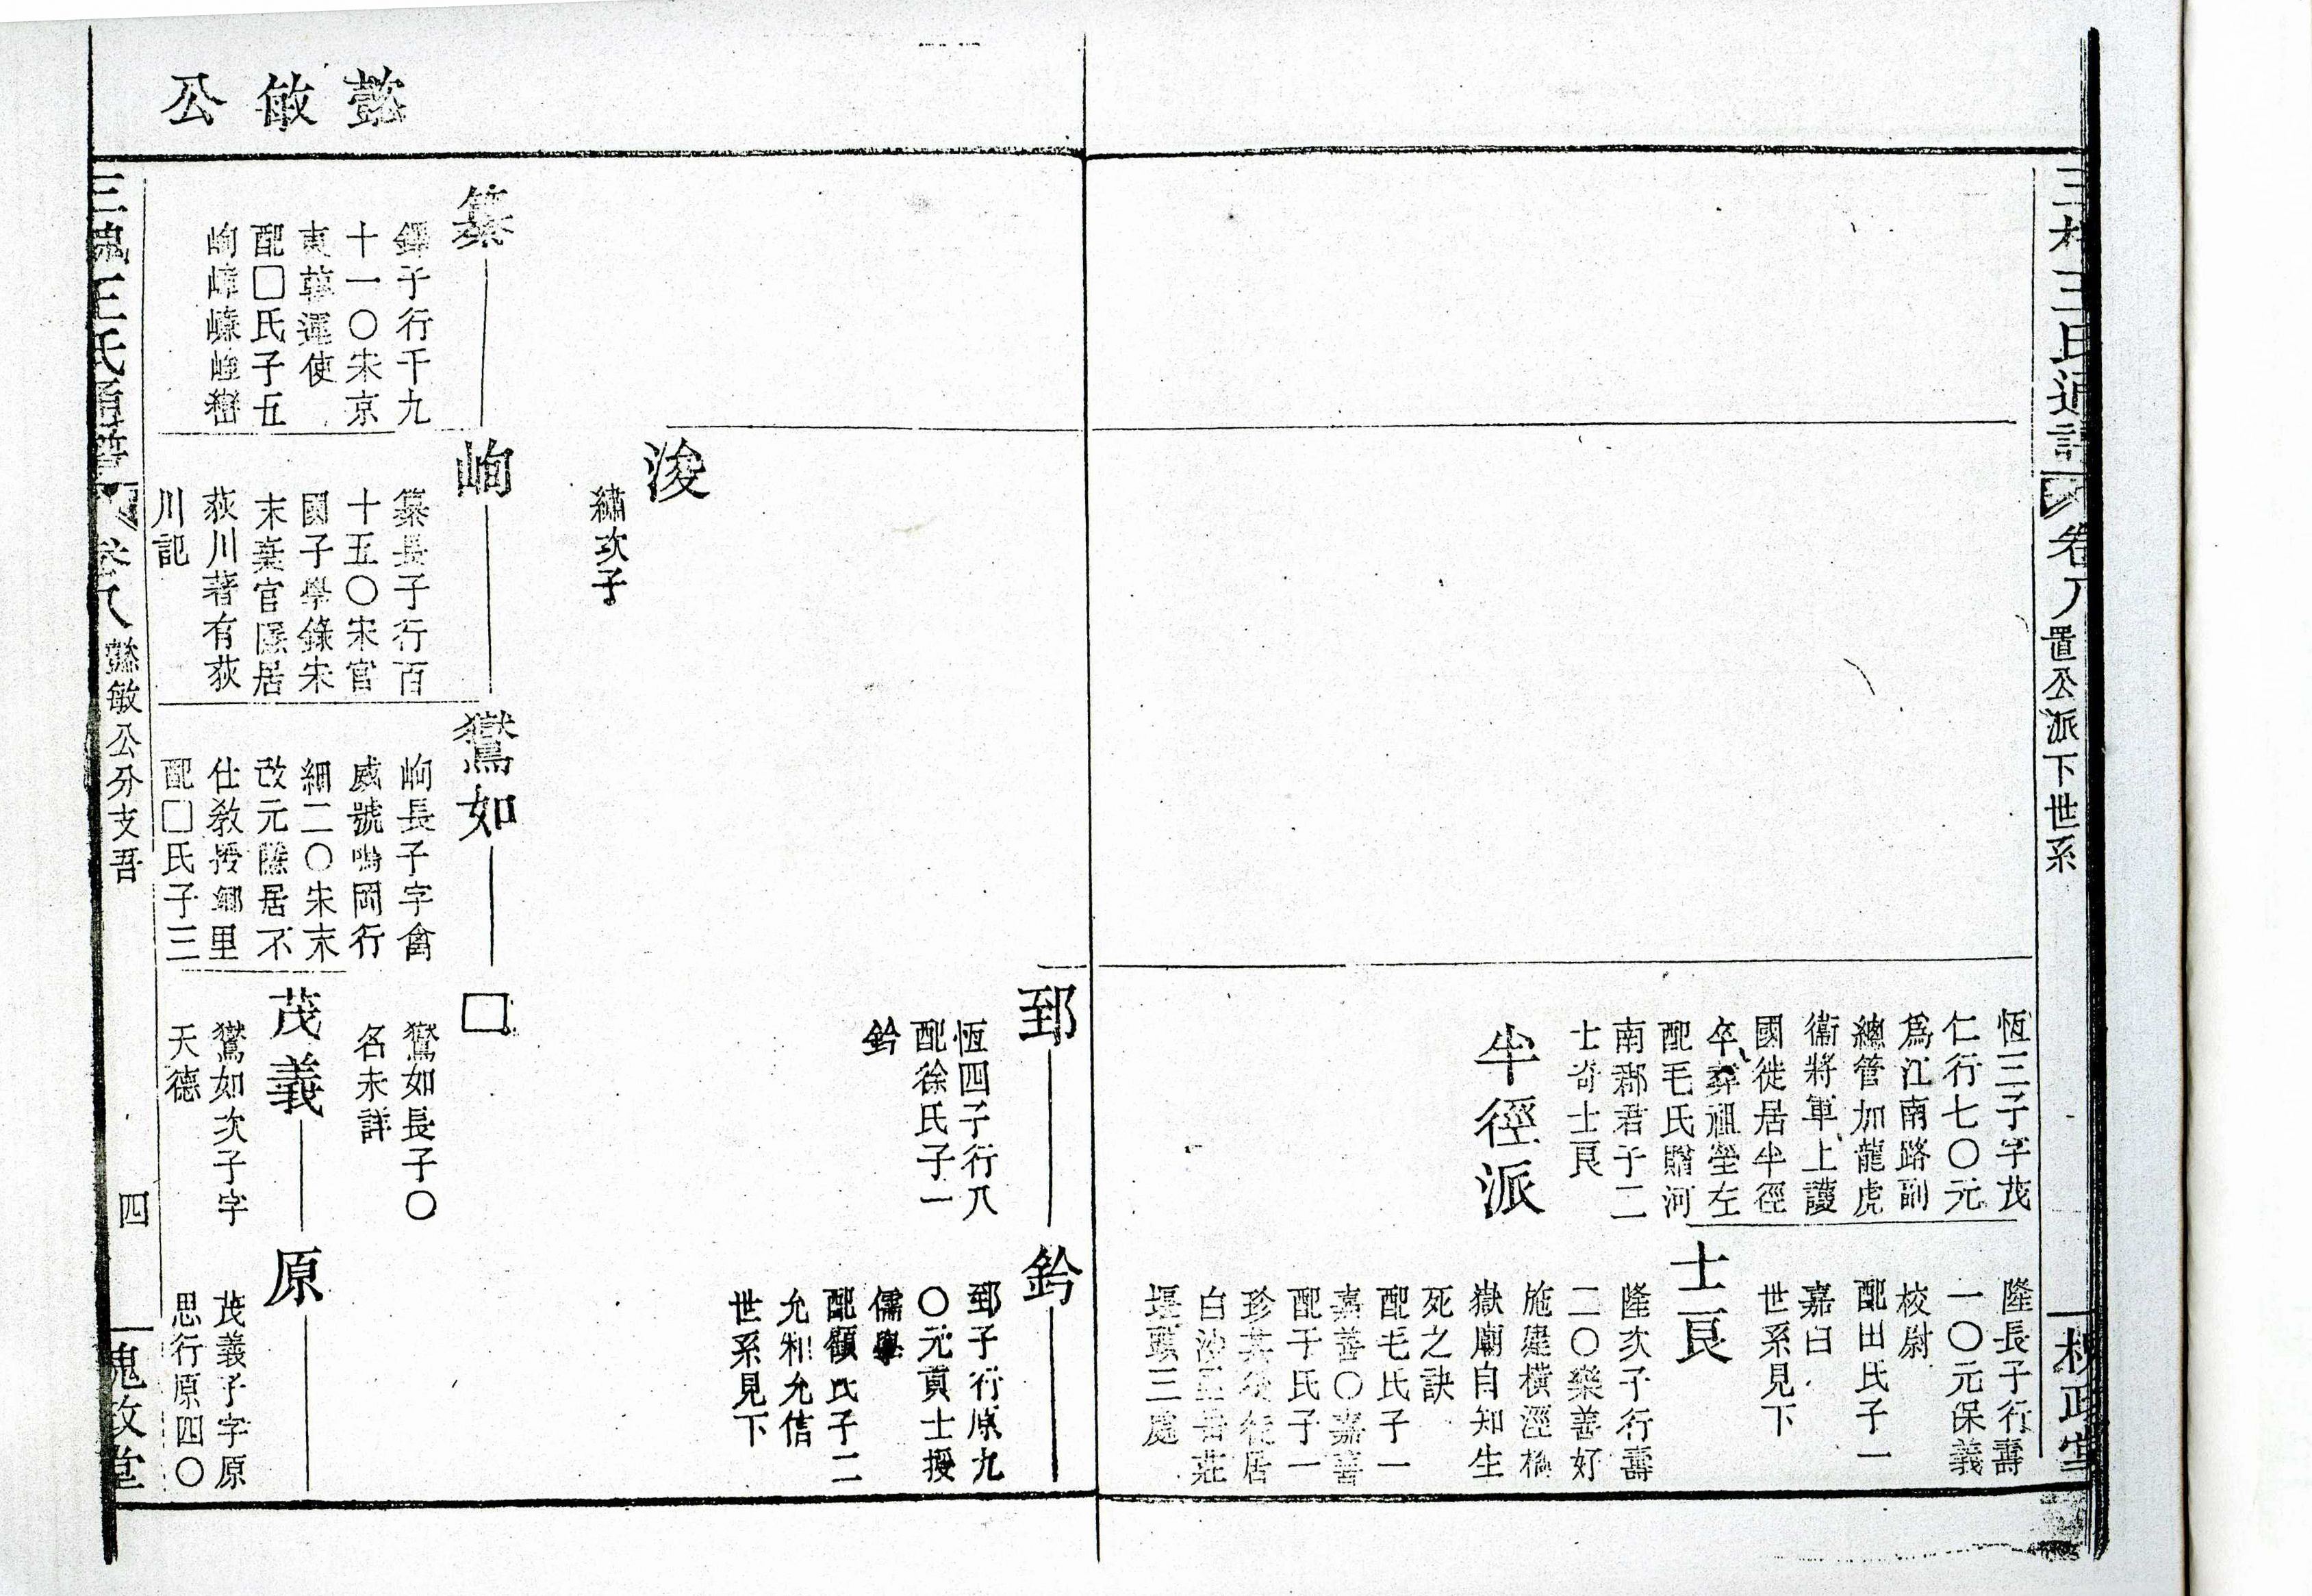 三槐王氏通譜
卷八
置公派下世系
槐政堂
恆三子字茂
仁行七〇元
爲江南路副
總管加龍虎
衞將軍上護
國徙居半徑
卒葬祖塋左
配毛氏贈河
南郡君子二
士奇士良
半徑派
隆長子行壽
一〇元保義
校尉
配田氏子一
嘉曰
世系見下
士良
隆次子行壽
二〇樂善好
施建橫涇橋
嶽廟自知生
死之訣
配毛氏子一
嘉善〇嘉善
配于氏子一
珍其後徙居
白沙
堰頭三處
郅
恆四子行八
配徐氏子一
鈐
鈐
郅子行原九
〇元貢士授
儒學
配顧氏子二
允和允信
世系見下
浚
繡次子
懿敏公
纂
鐸子行千九
十一〇宋京
東轉運使
配□氏子五
峋
峋
纂長子行百
十五〇宋官
國子學錄宋
末棄官隱居
荻川著有荻
川記
鸑如
峋長子字禽
威號鳴岡行
細二〇宋末
改元隱居不
仕敎授鄉里
配□氏子三
□
鸑如長子〇
名未詳
茂義
鸑如次子字
天德
原
茂義子字原
思行原四〇
三槐王氏通譜
卷八
懿敏公分支吾
四
槐政堂